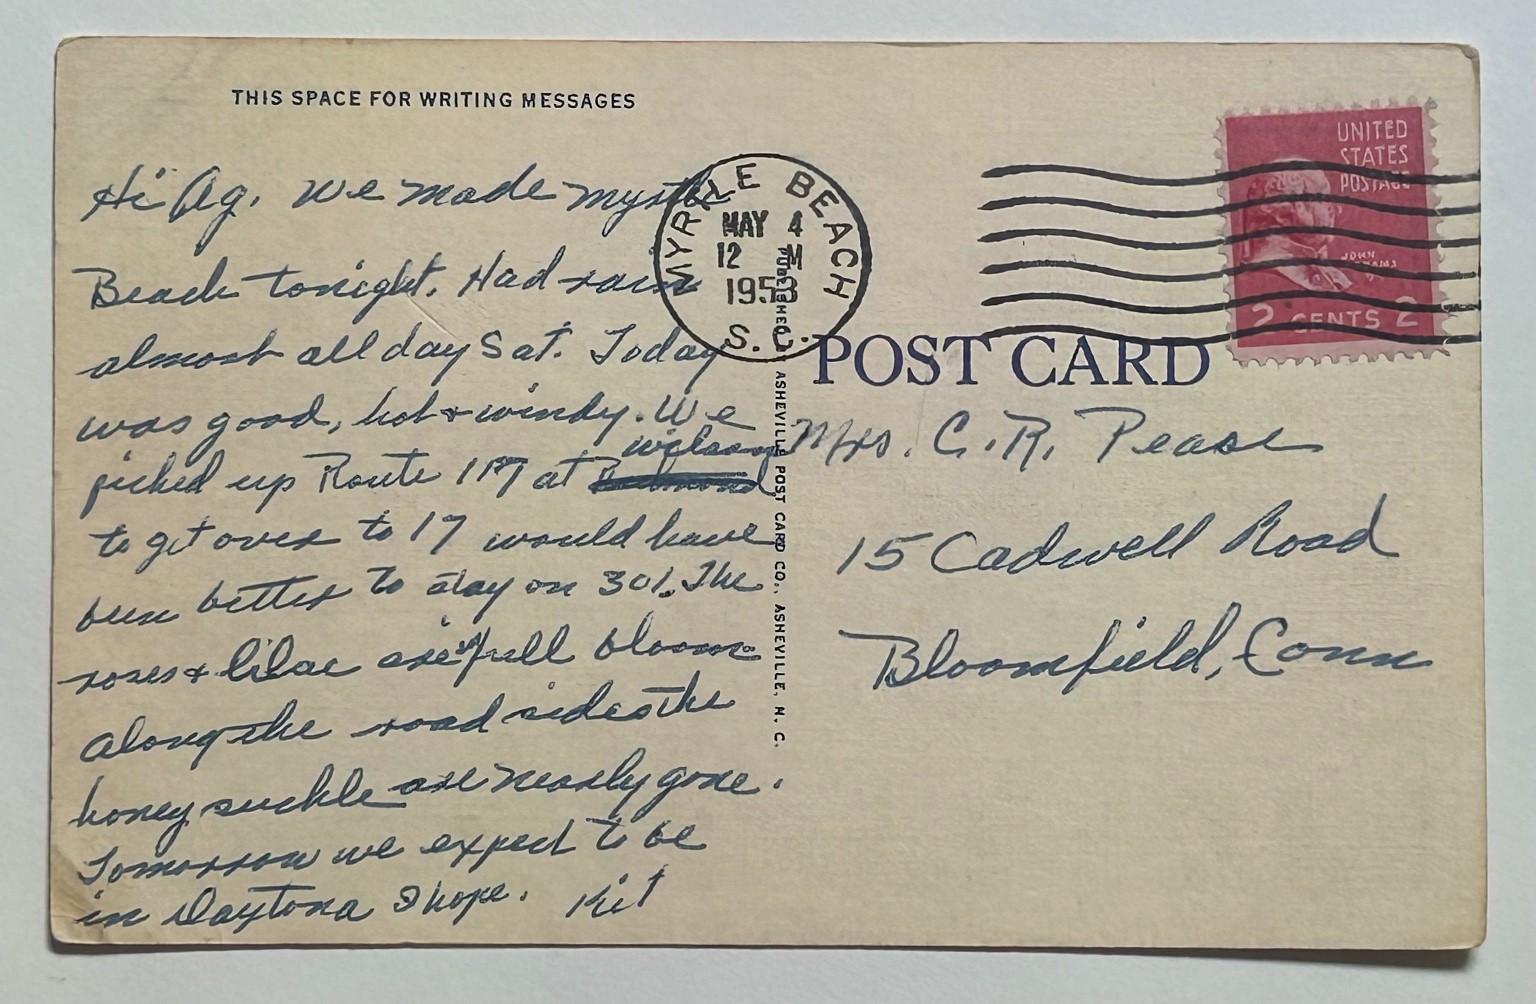 THIS SPACE FOR WRITING MESSAGES
Hi Ag. We made Myrtle
Beach tonight. Had rain
almost all day Sat. Today
was good, hot & windy. We
picked up Route 117 at Wilson
to get over to 17 would have
been better to stay on 301. The
roses & lilac are in full bloom
along the road sides the
honey suckle are nearly gone.
Tomorrow we expect to be
in Daytona I hope. Kit
MYRTLE BEACH
MAY 4
12 M
1953
S. C.
PUBLISHED ASHEVILLE POST CARD CO., ASHEVILLE, N. C.
UNITED
STATES
POSTAGE
JOHN
ADAMS
2 CENTS 2
POST CARD
Mrs. C. R. Pease
15 Cadwell Road
Bloomfield, Conn